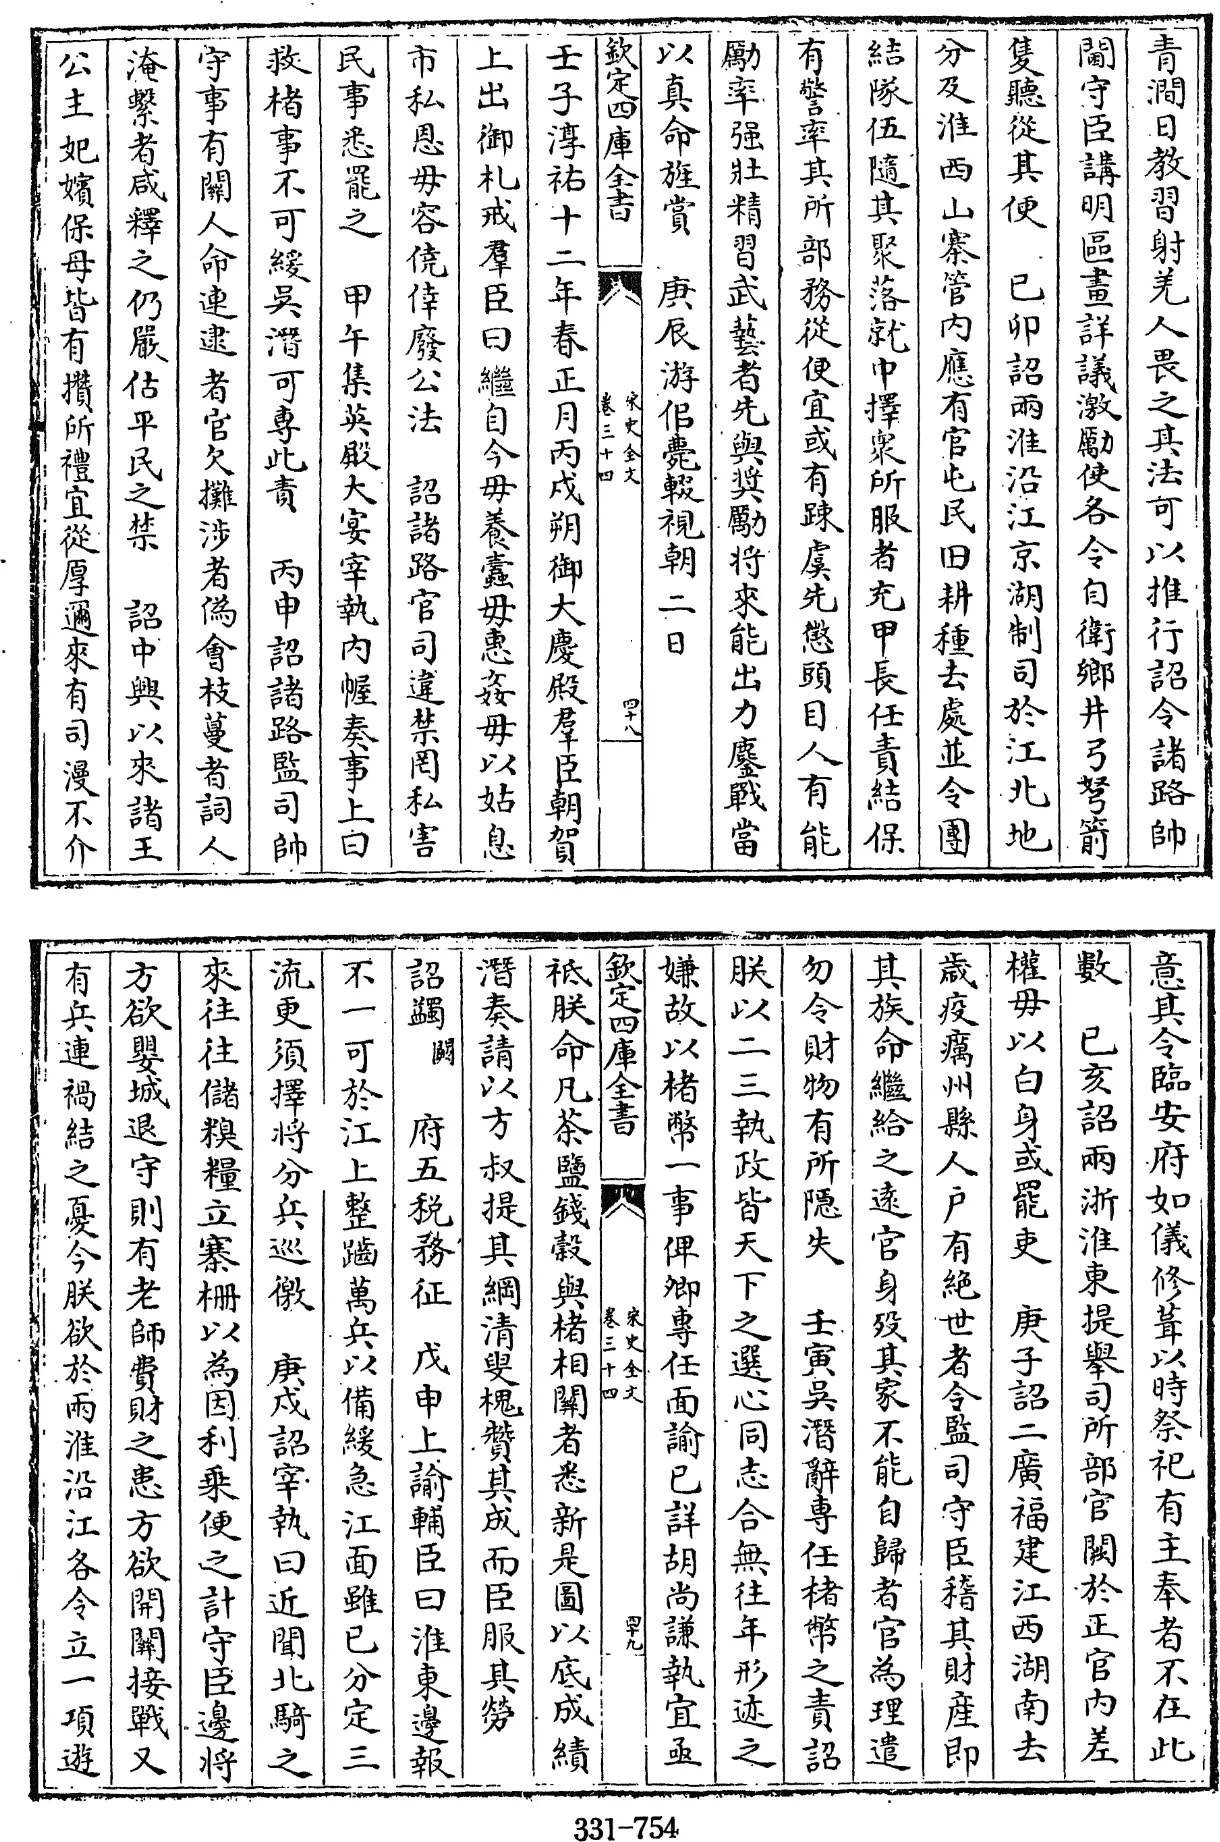 青澗日教習射羌人畏之其法可以推行詔令諸路帥
閫守臣講明區畫詳議激勵使各令自衛鄉井弓弩箭
隻聽從其便　己卯詔兩淮沿江京湖制司於江北地
分及淮西山寨管内應有官屯民田耕種去處並令團
結隊伍隨其聚落就中擇衆所服者充甲長任責結保
有警率其所部務從便宜或有踈虞先懲頭目人有能
勵率强壯精習武藝者先與奬勵將來能出力鏖戰當
以真命旌賞　庚辰游佀薨輟視朝二日
欽定四庫全書
宋史全文
卷三十四
四十八
壬子淳祐十二年春正月丙戌朔御大慶殿羣臣朝賀
上出御札戒羣臣曰繼自今毋養蠹毋惠姦毋以姑息
市私恩毋容僥倖廢公法　詔諸路官司違禁罔私害
民事悉罷之　甲午集英殿大宴宰執内幄奏事上曰
救楮事不可緩吳潛可專此責　丙申詔諸路監司帥
守事有關人命連逮者官欠攤涉者僞會枝蔓者詞人
淹繫者咸釋之仍嚴估平民之禁　詔中興以來諸王
公主妃嬪保母皆有攢所禮宜從厚邇來有司漫不介
意其令臨安府如儀修葺以時祭祀有主奉者不在此
數　己亥詔兩浙淮東提舉司所部官闕於正官内差
權毋以白身或罷吏　庚子詔二廣福建江西湖南去
歲疫癘州縣人户有絶世者令監司守臣稽其財産即
其族命繼給之遠官身殁其家不能自歸者官為理遣
勿令財物有所隠失　壬寅吳潛辭專任楮幣之責詔
朕以二三執政皆天下之選心同志合無往年形迹之
嫌故以楮幣一事俾卿專任面諭已詳胡尚謙執宜亟
欽定四庫全書
宋史全文
卷三十四
四十九
祗朕命凡茶鹽錢穀與楮相關者悉新是圖以底成績
潛奏請以方叔提其綱清叟槐贊其成而臣服其勞
詔蠲闕　府五税務征　戊申上諭輔臣曰淮東邊報
不一可於江上整齪萬兵以備緩急江面雖已分定三
流更須擇將分兵巡徼　庚戌詔宰執曰近聞北騎之
來往往儲糗糧立寨柵以為因利乗便之計守臣邊將
方欲嬰城退守則有老師費財之患方欲開關接戰又
有兵連禍結之憂今朕欲於兩淮沿江各令立一項遊
331-754